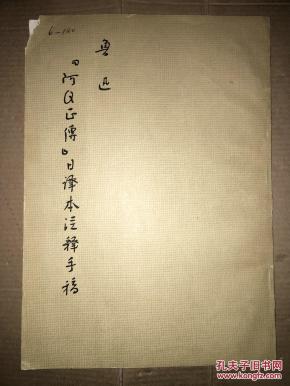 6-120
魯迅
『阿Q正傳』日譯本注释手稿
孔夫子旧书网